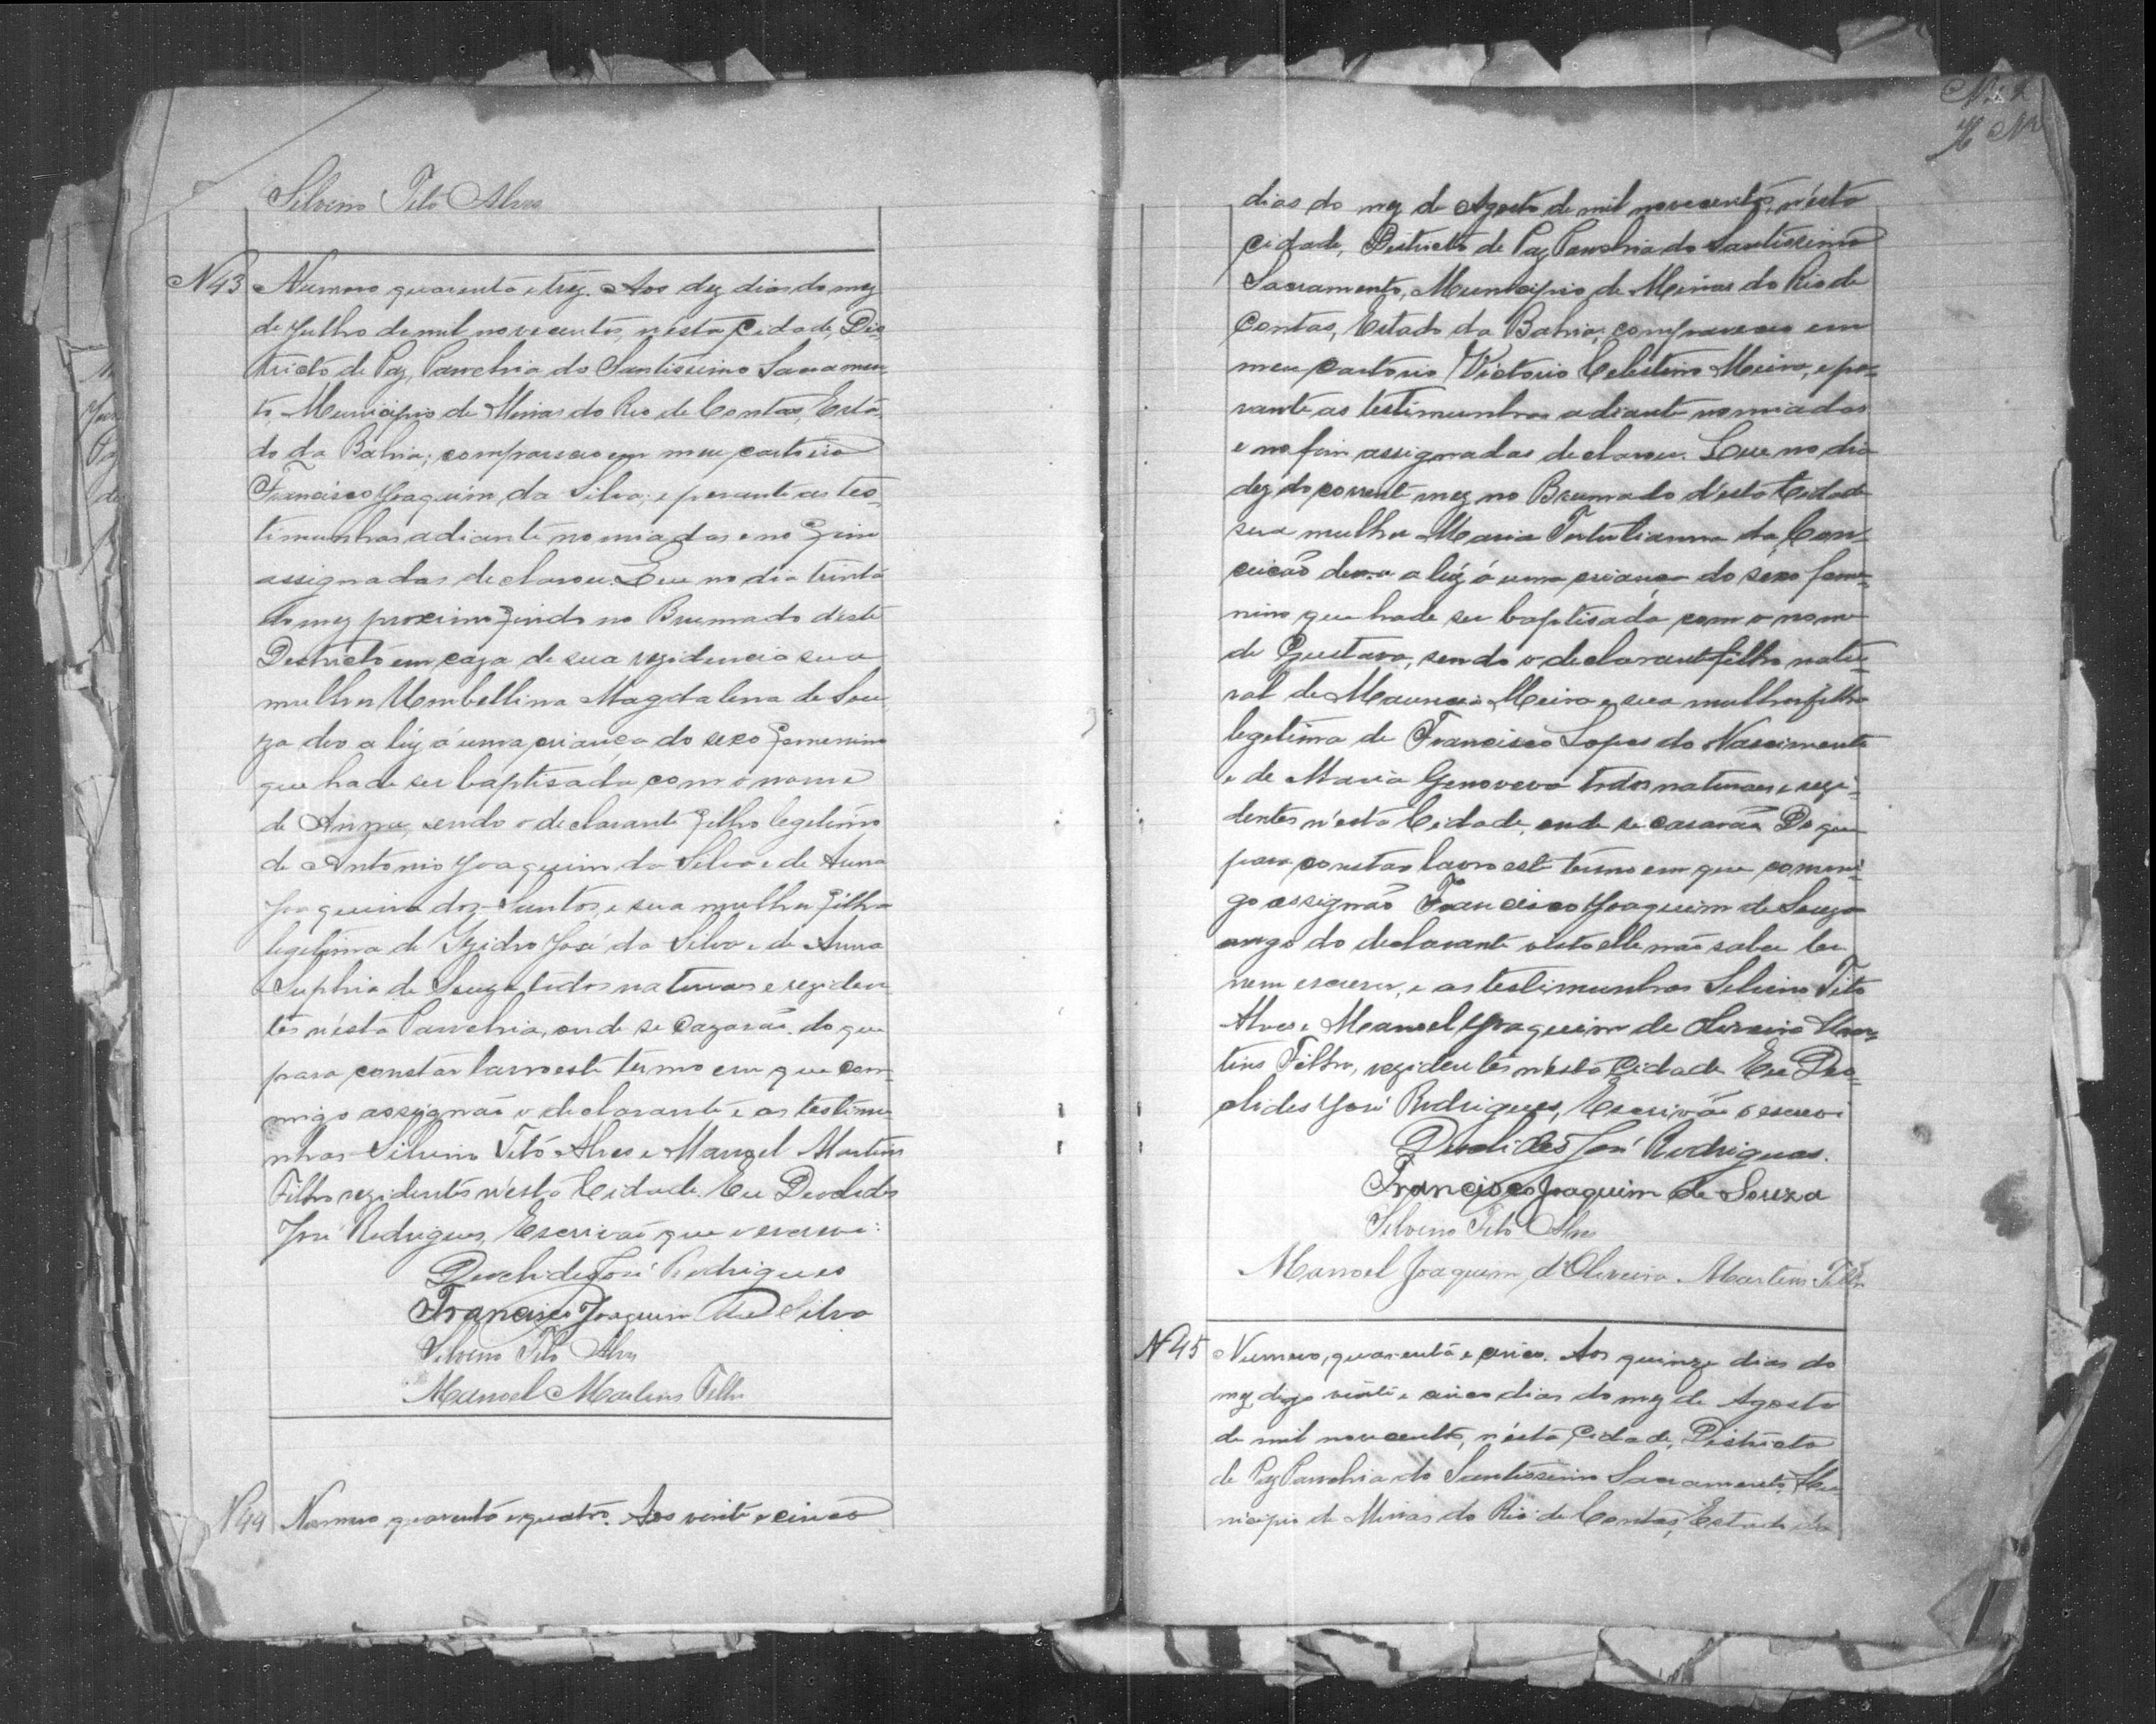 Silvino Tito Alves
N 43 Numero quarenta e trez. Aos dez dias do mez
de Julho de mil novecentos, n'esta Cidade, Dis-
tricto de Paz, Parochia do Santissimo Sacramen-
to, Municipio de Minas do Rio de Contas, Esta-
do da Bahia; compareceo em meu cartorio
Francisco Joaquim da Silva; e perante as tes-
timunhas adiante nomiadas e no fim
assignadas declarou: Que no dia trinta
do mez proximo findo no Brumado d'este
Destricto em caza de sua rezidencia sua
mulher Umbellina Magdalena de Sou-
za deo a luz á uma criança do sexo femenino
que hade ser baptisada com o nome
de Anna, sendo o declarante filho legitimo
de Antonio Joaquim da Silva e de Anna
Joaquina dos Santos, e sua mulher filha
legitima de Izidro José da Silva e de Anna
Suphia de Souza todos naturaes e reziden-
tes n'esta Parochia, onde se cazarão. do que
para constar lavro este termo em que com-
migo assignão o declarante e as testimu-
nhas Silvino Tito Alves e Manoel Martins
Filho rezidentes n'esta Cidade. Eu Deoclides
José Rodrigues, Escrivão que o escrevi:
Deoclides José Rodrigues
Francisco Joaquim da Silva
Silvino Tito Alves
Manoel Martins Filho
N 44 Numero quarenta e quatro. Aos vinte e cinco
dias do mez de Agosto de mil novecentos, n'esta
Cidade, Destricto de Paz Parochia do Santissimo
Sacramento, Municipio de Minas do Rio de
Contas, Estado da Bahia; compareceo em
meu cartorio Victorio Celestino Meira, e pe-
rante as testimunhas adiante nomiadas
e no fim assignadas declarou. Que no dia
dez do corrente mez no Brumado d'esta Cidade
sua mulher Maria Tertulianna da Con-
ceicão dera a luz á uma criança do sexo feme-
nino que hade ser baptisada com o nome
de Gustava, sendo o declarante filho natu-
ral de Meira e sua mulher filha
legitima de Francisco Lopes do Nascimento
e de Maria Genoveva todos naturaes e rezi-
dentes n'esta Cidade, onde se casarão Do que
para constar lavro este termo em que commi-
go assignão Francisco Joaquim de Souza
arrogo do declarante visto elle não saber ler
nem escrever, e as testimunhas Silvino Tito
Alves e Manoel Joaquim de Oliveira Mar-
tins Filho, rezidentes n'esta Cidade Eu Deo-
clides José Rodrigues, Escrivão o escrevi
Deoclides José Rodrigues.
Francisco Joaquim de Souza
Silvino Tito Alves
Manoel Joaquim d'Oliveira Martins Filho
N 45 Numero, quarenta e cinco. Aos quinze dias do
mez, digo vinte e cinco dias do mez de Agosto
de mil novecentos, n'esta Cidade, Districto
de Paz Parochia do Santissimo Sacramento, Mu-
nicipio de Minas do Rio de Contas, Estado da